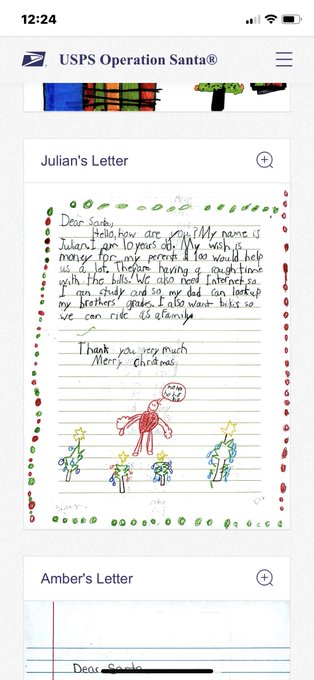 12:24
USPS Operation Santa®
Julian's Letter
Dear Santa,
Hello, how are you? My name is
Julian. I am 10 years old. My wish is
money for my perents 100 would help
us a lot. They are having a rough time
with the bills. We also need Internet so
I can study and so my dad can look up
my brothers grades. I also want bikes so
we can ride as a family
Thank you very much
Merry Christmas
ho ho
ho ho
ho
Amber's Letter
Dear Santa